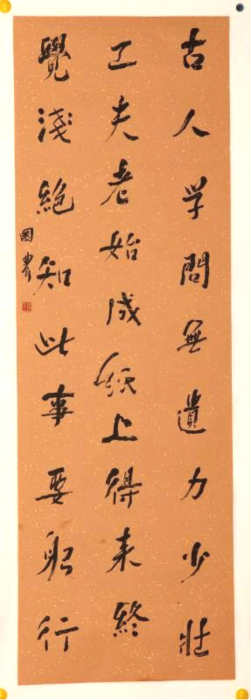 古人学問無遺力少壯
工夫老始成紙上得来終
覺淺絶知此事要躬行